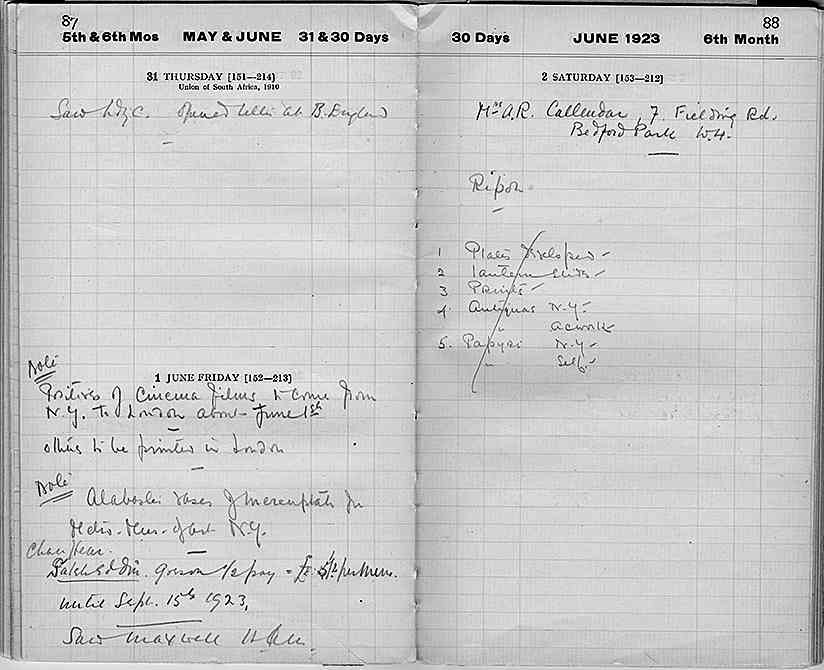 87
5th & 6th Mos MAY & JUNE 31 & 30 Days
31 THURSDAY [151—214]
Union of South Africa, 1910
Saw opened at B. England
Note
1 JUNE FRIDAY [152—213]
Positives of Cinema films to come from
N.Y. to London about June 1st
others to be printed in London
Note
Alabaster vases of for
Metro. Mus. of art N.Y.
goes on 1/2 pay = per Mens.
until Sept. 15th 1923.
Saw Maxwell
88
30 Days JUNE 1923 6th Month
2 SATURDAY [153—212]
Mrs A.R. Callendar, 7. Fielding Rd.
Bedford Park W.4.
Ripon
1 Plates developed -
2 lantern slides -
3 Prints -
4. Antiquas N.Y. -
" acworth
5. Papyri N.Y -
" Self. -